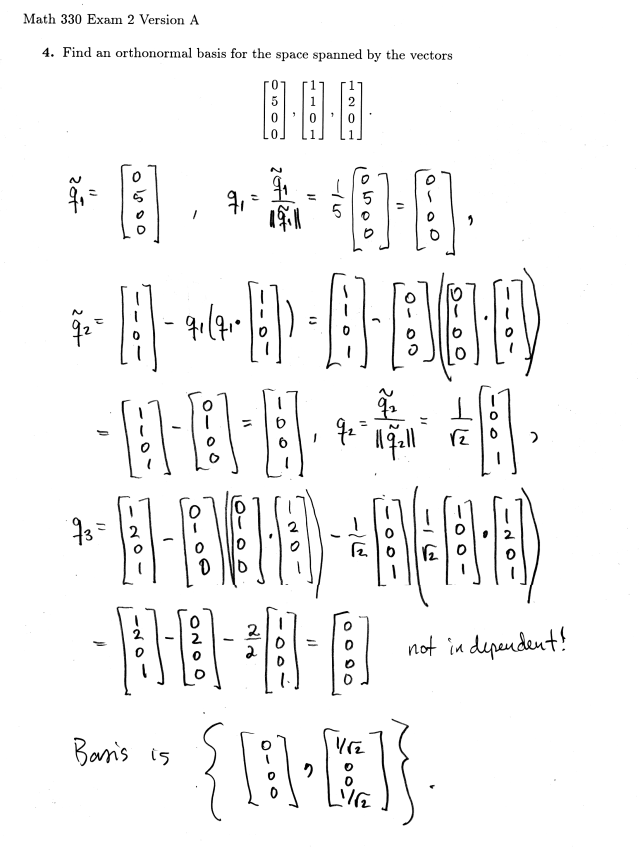 Math 330 Exam 2 Version A
4. Find an orthonormal basis for the space spanned by the vectors
[0 5 0 0], [1 1 0 1], [1 2 0 1].
q̃₁ = [0 5 0 0], q₁ = q̃₁/‖q̃₁‖ = 1/5 [0 5 0 0] = [0 1 0 0],
q̃₂ = [1 1 0 1] - q₁(q₁·[1 1 0 1]) = [1 1 0 1] - [0 1 0 0]([0 1 0 0]·[1 1 0 1])
= [1 1 0 1] - [0 1 0 0] = [1 0 0 1], q₂ = q̃₂/‖q̃₂‖ = 1/√2 [1 0 0 1],
q₃ = [1 2 0 1] - [0 1 0 0]([0 1 0 0]·[1 2 0 1]) - 1/√2 [1 0 0 1](1/√2 [1 0 0 1]·[1 2 0 1])
= [1 2 0 1] - [0 2 0 0] - 2/2 [1 0 0 1] = [0 0 0 0] not independent!
Basis is { [0 1 0 0], [1/√2 0 0 1/√2] }.